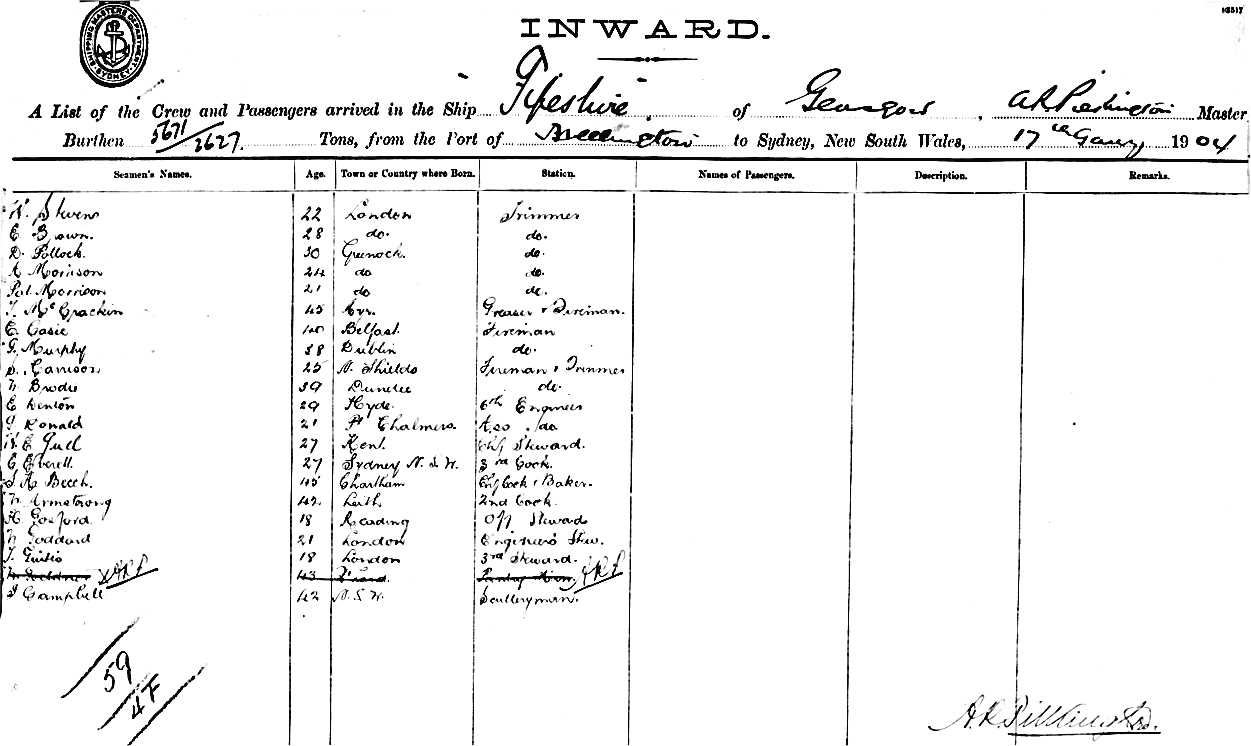 SHIPPING MASTERS DEPARTMENT SYDNEY
INWARD.
A List of the Crew and Passengers arrived in the Ship "Fifeshire", of Glasgow, A.R. Pilkington Master
Burthen 5671/3627. Tons, from the Port of to Sydney, New South Wales, 17th 1904
Seamen's Names. Age. Town or Country where Born. Station. Names of Passengers. Description. Remarks.
W. Stevens 22 London Trimmer
E Brown. 28 do. do.
D. Pollock. 30 Greenock. do.
A Morrison 24 do do.
Pat Morrison 21 do do.
T. McCrackin 45 Ayr. Greaser & Fireman.
E. Casie 40 Belfast. Fireman
G. Murphy 38 Dublin do.
S. Garrison 25 N. Shields Fireman & Trimmer
W Brodie 39 Dundee do.
E Denton 29 Hyde. 6th Engineer
G Ronald 21 Pt Chalmers. do
W. E. Gull 27 Kent. Chf Steward.
C Everell 27 Sydney N.S.W. 3rd Cook.
J A Beech. 45 Chartham Chf Cook & Baker.
W Armstrong 42 Leith 2nd Cook.
H Gosford. 18 Reading Off Steward
W Goddard 21 London Engineers Stew.
T. 18 London 3rd Steward.
ARP 43 ARP
J Campbell 42 N.S.W. Sculleryman.
59
4F
A.R. Pilkington.